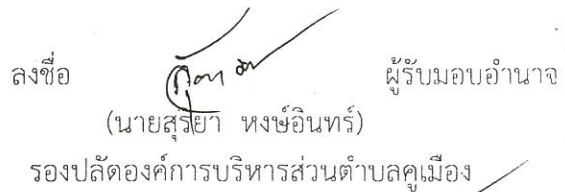 ลงชื่อ ผู้รับมอบอำนาจ
(นายสุริยา หงษ์อินทร์)
รองปลัดองค์การบริหารส่วนตำบลคูเมือง